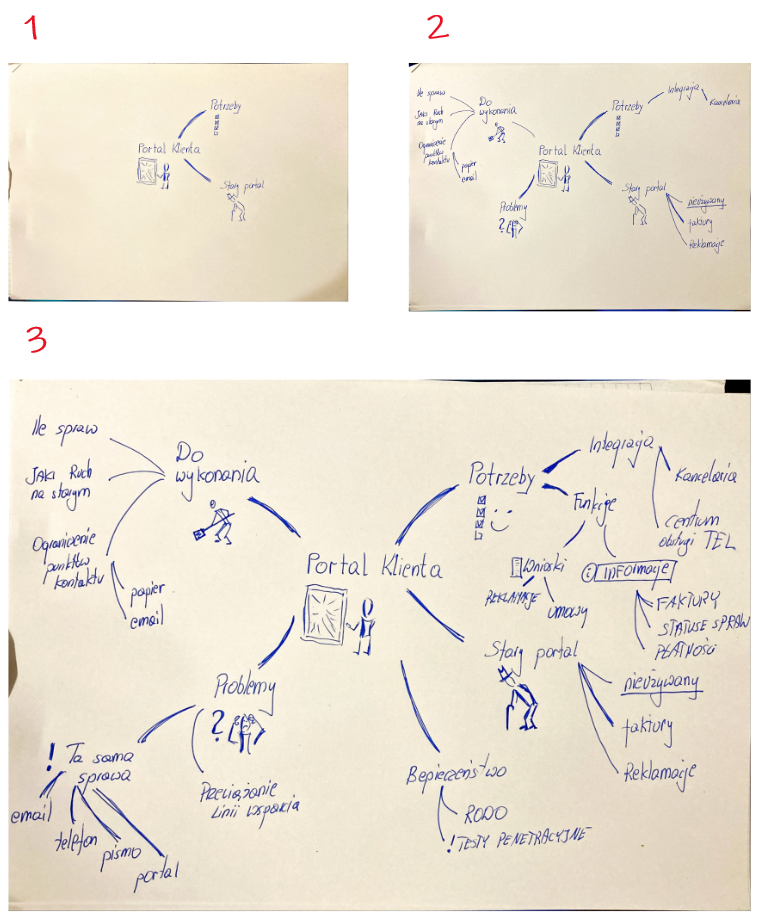 1
Potrzeby
Portal Klienta
Stary portal
2
Ile spraw
Jaki Ruch
na starym
Ograniczenie
punktów
kontaktu
papier
email
Do
wykonania
Problemy
?
Portal Klienta
Potrzeby
Integracja
Kancelaria
Stary portal
nieużywany
faktury
Reklamacje
3
Ile spraw
JAKI Ruch
na starym
Ograniczenie
punktów
kontaktu
papier
email
Do
wykonania
Portal Klienta
Potrzeby
Integracja
Kancelaria
centrum
obsługi TEL
Funkcje
Wnioski
REKLAMACJE
umowy
i INFOrmacje
FAKTURY
STATUSE SPRAW
PŁATNOŚCI
Stary portal
nieużywany
faktury
Reklamacje
Problemy
?
! Ta sama
sprawa
email
telefon
pismo
portal
Przeciążanie
Linii wsparcia
Bepieczeństwo
RODO
! TESTY PENETRACYJNE